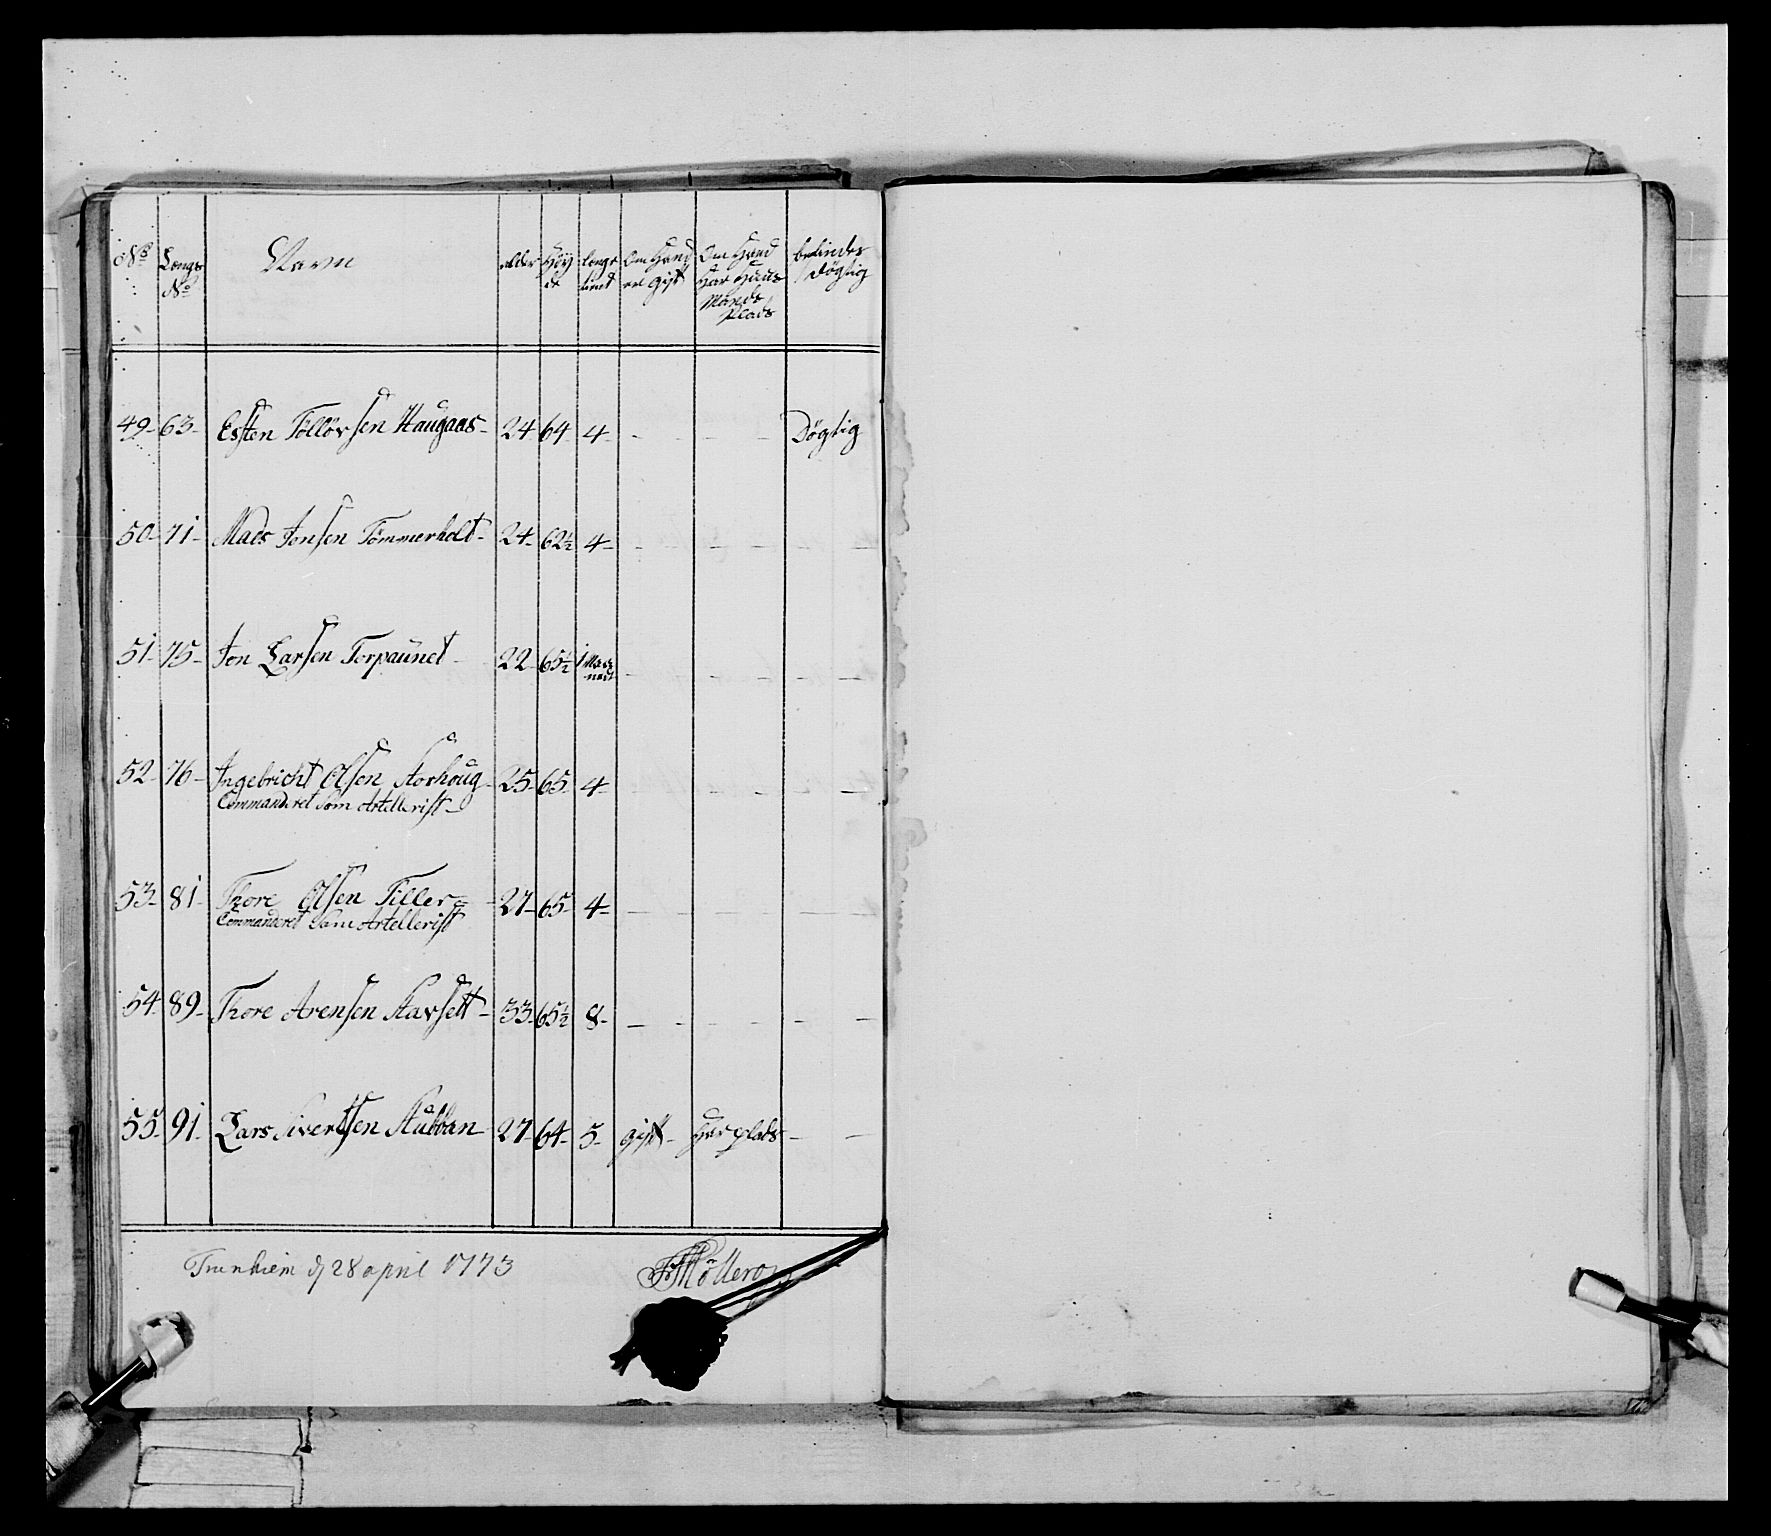 No Længe No Navn alder Høyde længe tient Om Hand er gift Om Hand Har Huus Mands Plads befindes Døgtig
49- 63- Esten Tølløvsen Haugaas- 24 64 4- - - - Døgtig
50- 71- Mads Jonsen Tømmerholt- 24- 62½ 4- - - - -
51- 75- Jon Larsen Torpaunet- 22- 65½ 1 Maanedt - - - -
52- 76- Ingebricht Olsen Storhoug- 25- 65- 4- - - - -
Commanderet som Artellerist-
53- 81- Thore Olsen Tiller- 27- 65- 4- - - - -
Commanderet som Artellerist
54- 89- Thore Arensen Stavsett- 33- 65½ 8- - - - -
55- 91- Lars Sivertsen Stubban- 27- 64- 5- gift- Har plads- -
Trunhiem d 28 april 1773